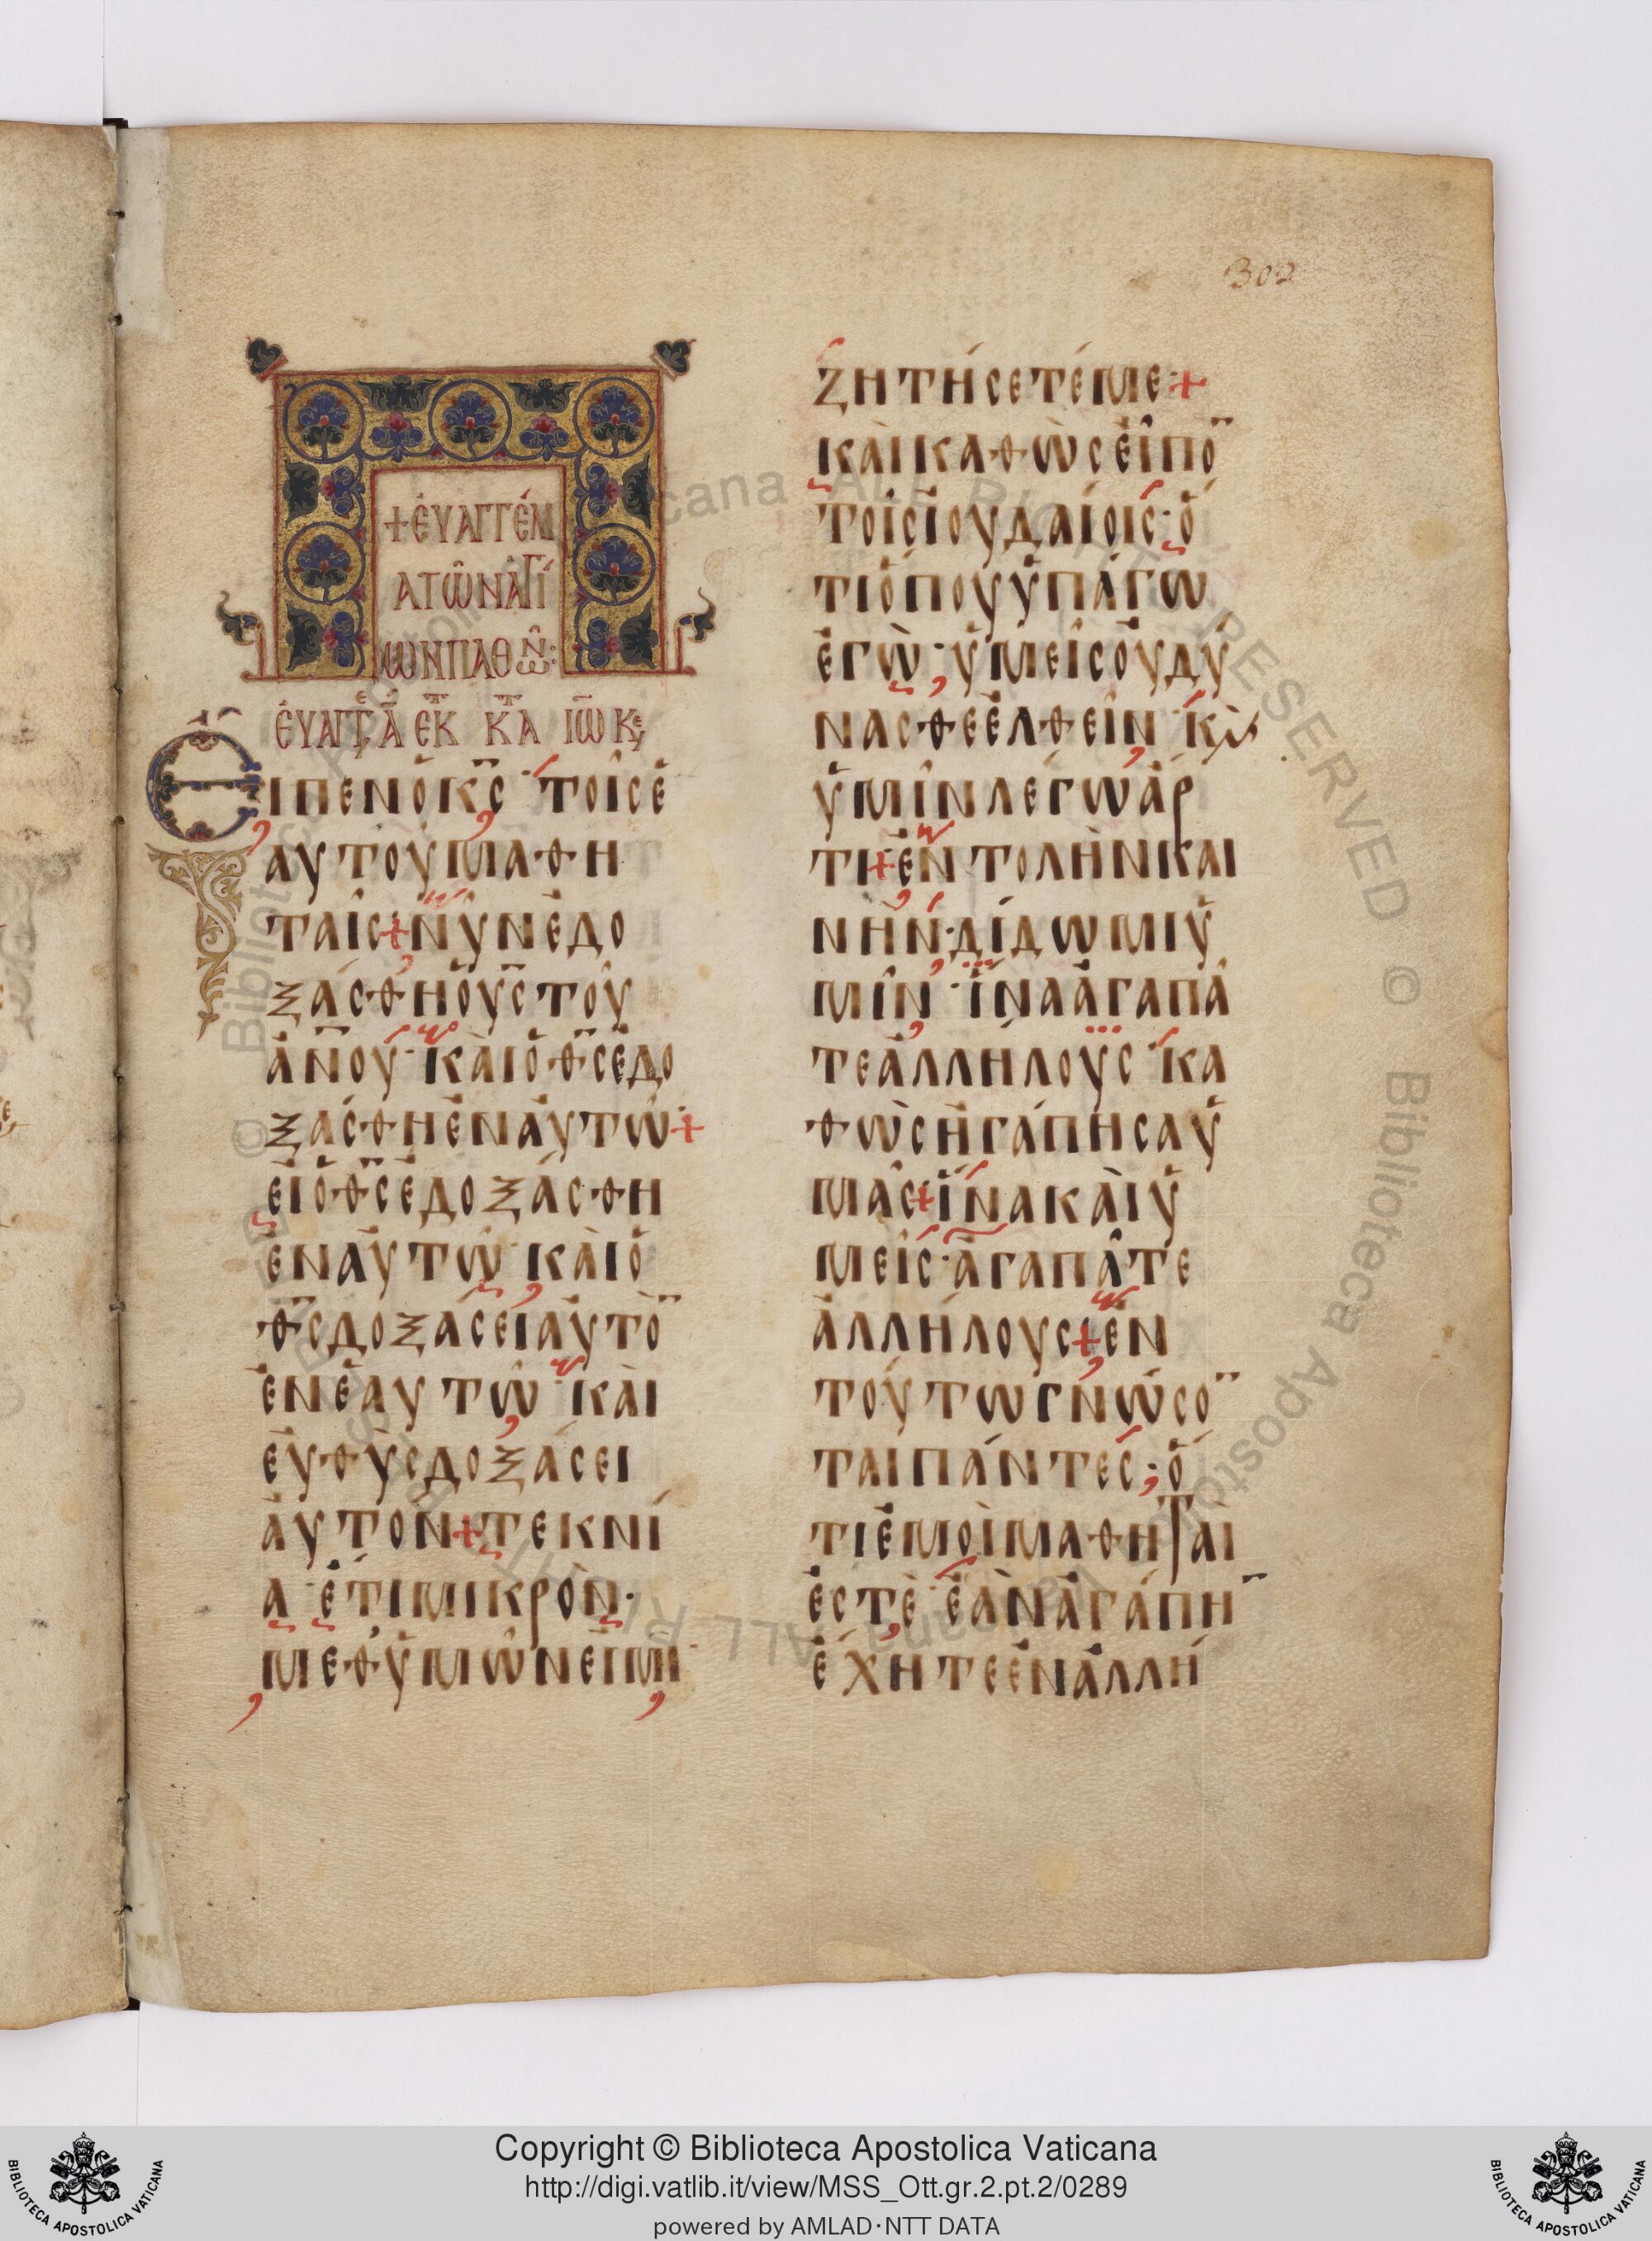 302
+ ΕΥΑΓΓΕΛΙ
Α ΤΩΝ ΑΓΙ
ΩΝ ΠΑΘΩΝ:
ΕΥΑΓΓΕ Α ΕΚ Τ ΚΑΤ ΙΩ ΚΕ,
ΕΙΠΕΝ Ο ΚϹ ΤΟΙϹ Ε
ΑΥΤΟΥ ΜΑΘΗ
ΤΑΙϹ + ΝΥΝ ΕΔΟ
ΞΑϹΘΗ Ο ΥϹ ΤΟΥ
ΑΝΟΥ ΚΑΙ Ο ΘϹ ΕΔΟ
ΞΑϹΘΗ ΕΝ ΑΥΤΩ +
ΕΙ Ο ΘϹ ΕΔΟΞΑϹΘΗ
ΕΝ ΑΥΤΩ ΚΑΙ Ο
ΘϹ ΔΟΞΑϹΕΙ ΑΥΤΟ̅
ΕΝ ΕΑΥΤΩ ΚΑΙ
ΕΥΘΥϹ ΔΟΞΑϹΕΙ
ΑΥΤΟΝ + ΤΕΚΝΙ
Α ΕΤΙ ΜΙΚΡΟΝ·
ΜΕΘ ΥΜΩΝ ΕΙΜΙ
ΖΗΤΗϹΕΤΕ ΜΕ +
ΚΑΙ ΚΑΘΩϹ ΕΙΠΟ̅
ΤΟΙϹ ΙΟΥΔΑΙΟΙϹ· Ο
ΤΙ ΟΠΟΥ ΥΠΑΓΩ
ΕΓΩ· ΥΜΕΙϹ ΟΥ ΔΥ
ΝΑϹΘΕ ΕΛΘΕΙΝ ΚΑΙ
ΥΜΙΝ ΛΕΓΩ ΑΡ
ΤΙ + ΕΝΤΟΛΗΝ ΚΑΙ
ΝΗΝ· ΔΙΔΩΜΙ Υ
ΜΙΝ ΙΝΑ ΑΓΑΠΑ
ΤΕ ΑΛΛΗΛΟΥϹ ΚΑ
ΘΩϹ ΗΓΑΠΗϹΑ Υ
ΜΑϹ + ΙΝΑ ΚΑΙ Υ
ΜΕΙϹ· ΑΓΑΠΑΤΕ
ΑΛΛΗΛΟΥϹ + ΕΝ
ΤΟΥΤΩ ΓΝΩϹΟ̅
ΤΑΙ ΠΑΝΤΕϹ· Ο
ΤΙ ΕΜΟΙ ΜΑΘΗΤΑΙ
ΕϹΤΕ ΕΑΝ ΑΓΑΠΗ̅
ΕΧΗΤΕ ΕΝ ΑΛΛΗ
Copyright © Biblioteca Apostolica Vaticana
http://digi.vatlib.it/view/MSS_Ott.gr.2.pt.2/0289
powered by AMLAD·NTT DATA
BIBLIOTECA APOSTOLICA VATICANA
BIBLIOTECA APOSTOLICA VATICANA